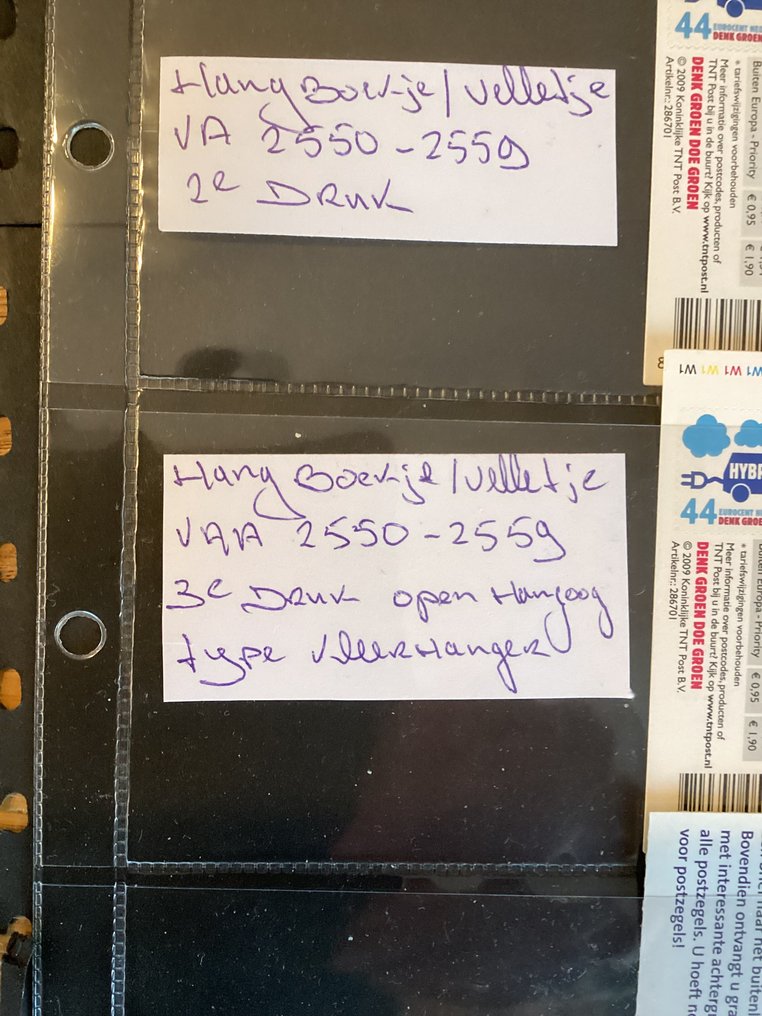 Hang Boekje/velletje
VA 2550-2559
2e Druk
Hang Boekje/velletje
VAA 2550-2559
3e Druk open Hangoog
type kleerHanger
44 EUROCENT
DENK GROEN
Buiten Europa - Priority € 0,95 € 1,90
* tariefswijzigingen voorbehouden
Meer informatie over postcodes, producten of
TNT Post bij u in de buurt? Kijk op www.tntpost.nl
DENK GROEN DOE GROEN
© 2009 Koninklijke TNT Post B.V.
Artikelnr.: 286701
W1 W1 W1 W1
HYB
44 EUROCENT
DENK GROEN
Buiten Europa - Priority € 0,95 € 1,90
* tariefswijzigingen voorbehouden
Meer informatie over postcodes, producten of
TNT Post bij u in de buurt? Kijk op www.tntpost.nl
DENK GROEN DOE GROEN
© 2009 Koninklijke TNT Post B.V.
Artikelnr.: 286701
naar het buitenl
Bovendien ontvangt u gra
met interessante achtergr
alle postzegels. U hoeft n
voor postzegels!